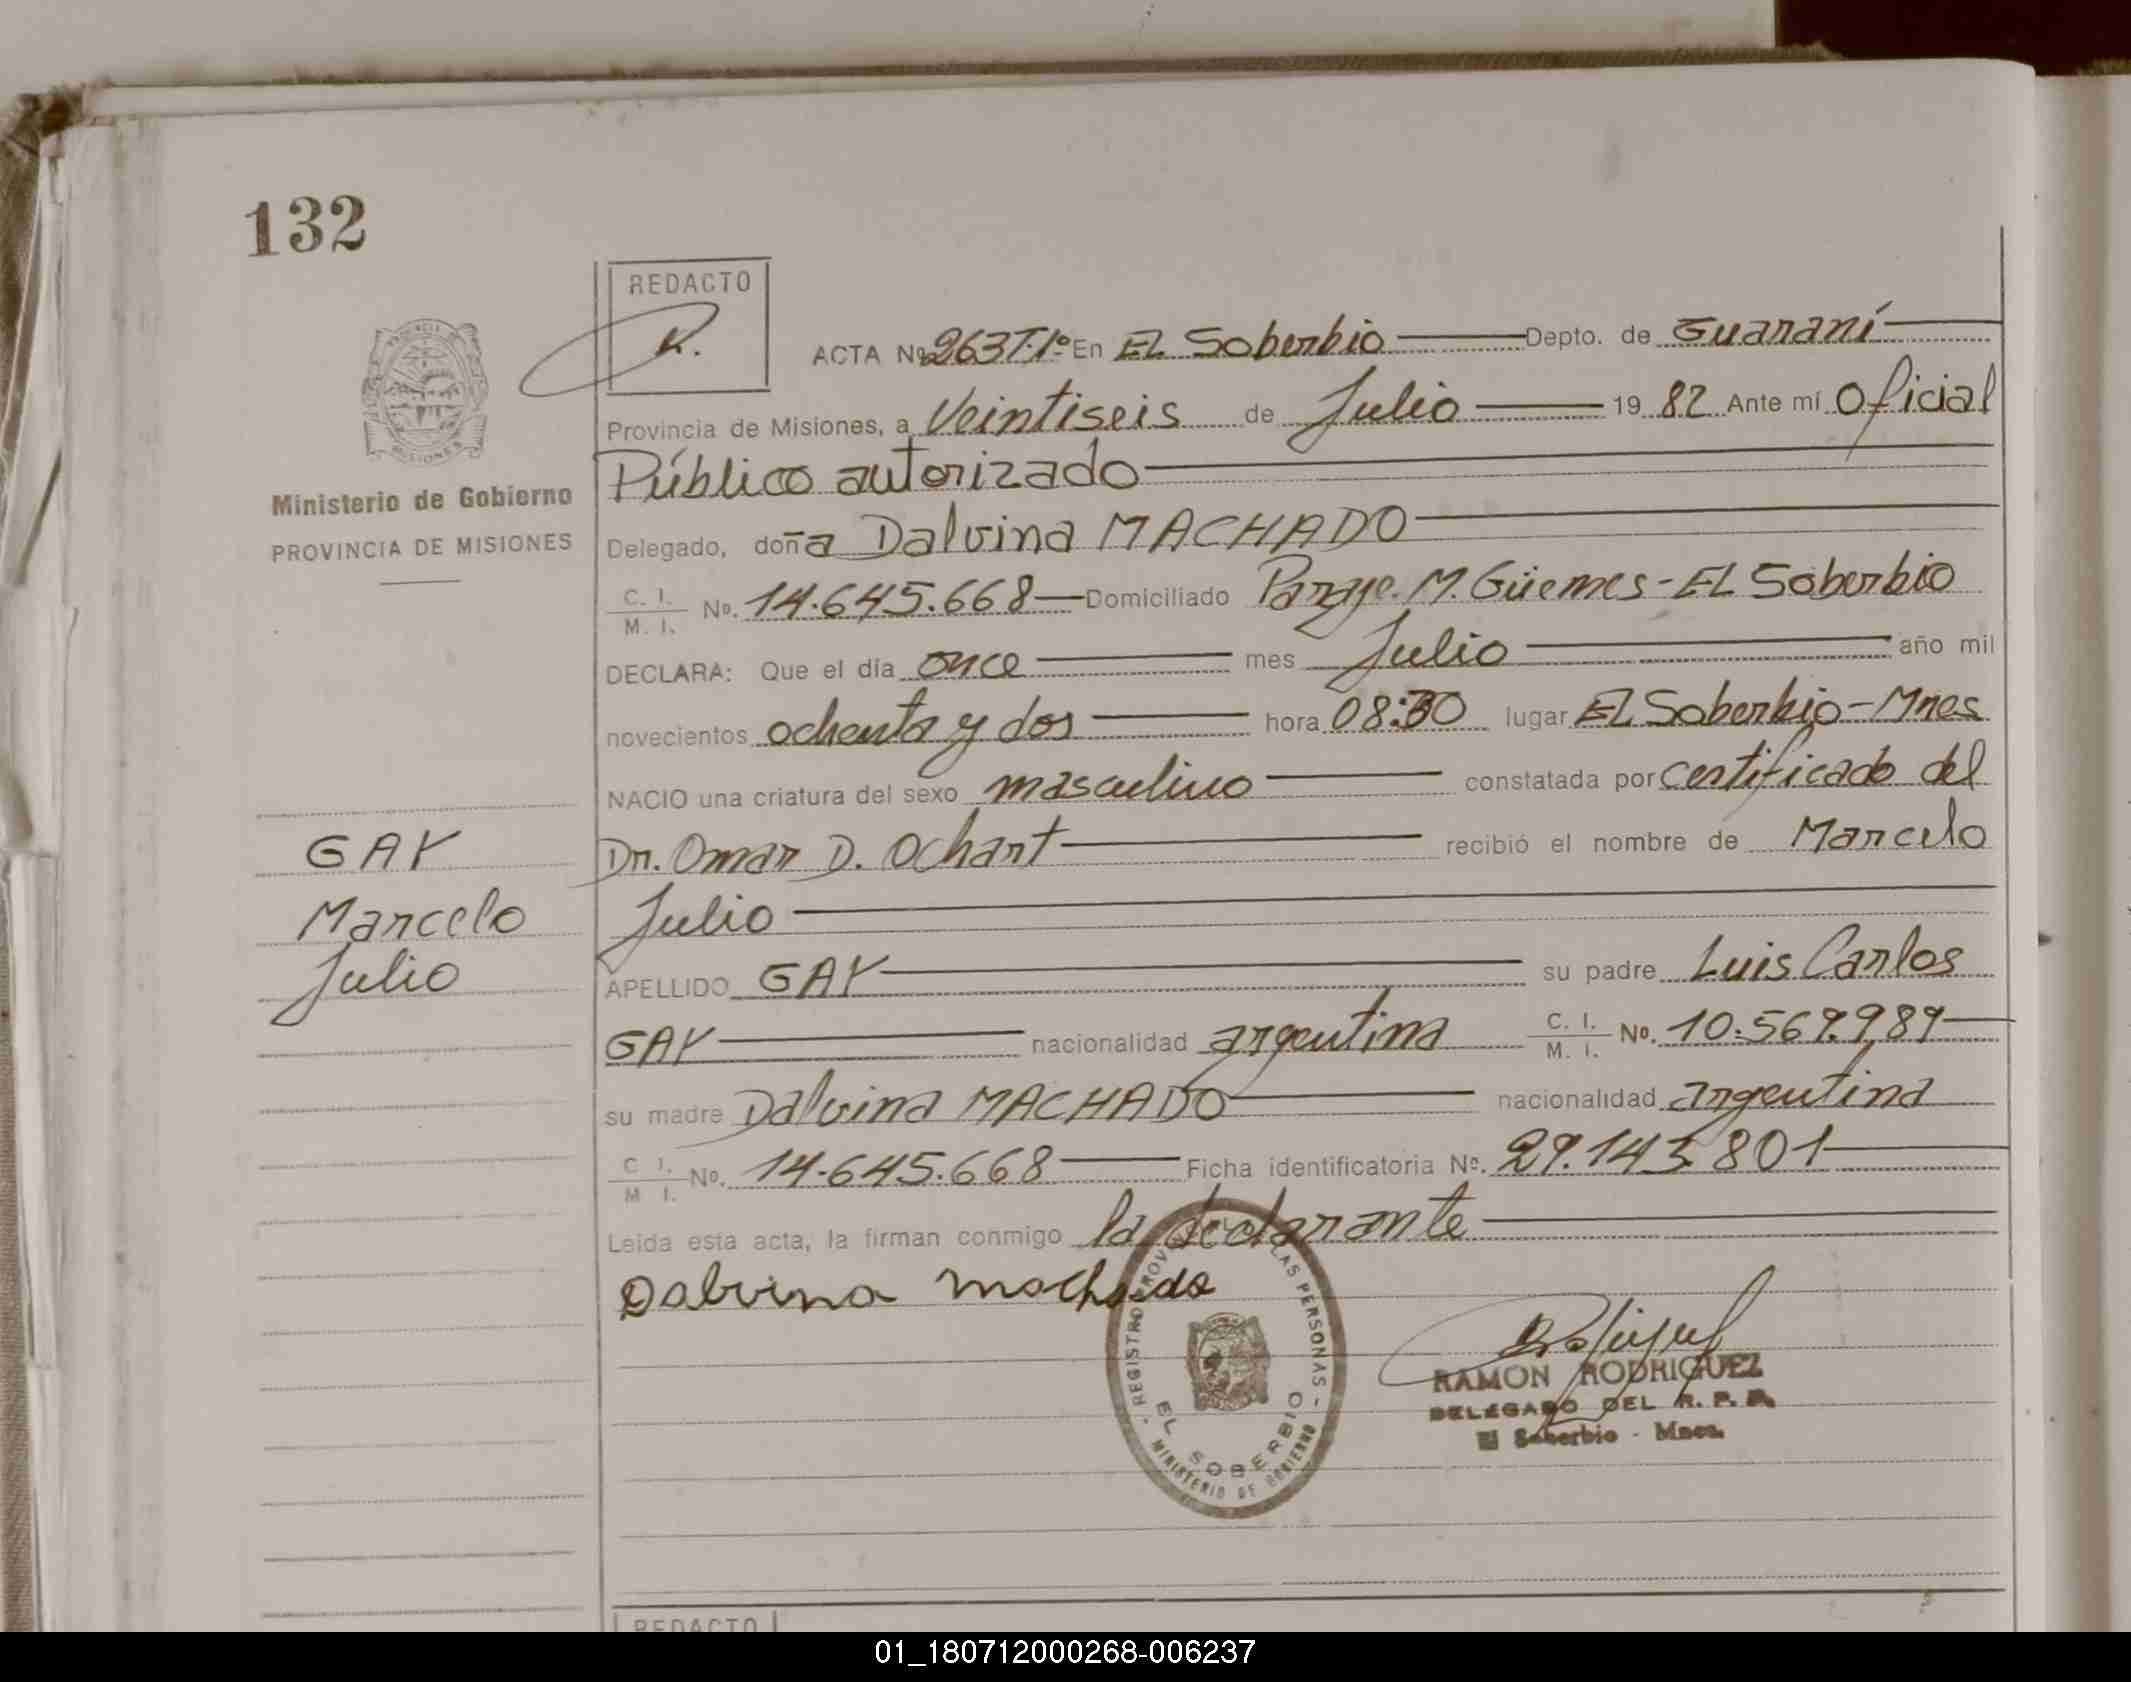 132
REDACTO
R.
ACTA Nº 263 T.1º En EL Soberbio Depto. de Guaraní
Provincia de Misiones, a Veintiseis de Julio 19 82 Ante mí Oficial
Público autorizado
Ministerio de Gobierno
PROVINCIA DE MISIONES
Delegado, doña Dalvina MACHADO
C. I.
M. I. Nº. 14.645.668 Domiciliado Paraje. M. Güemes - EL Soberbio
DECLARA: Que el día once mes Julio año mil
novecientos ochenta y dos hora 08:30 lugar EL Soberbio - Mnes
NACIO una criatura del sexo masculino constatada por certificado del
Dr. Omar D. Ochart recibió el nombre de Marcelo
Julio
GAY
Marcelo
Julio
APELLIDO GAY su padre Luis Carlos
GAY nacionalidad argentina C. I.
M. I. Nº. 10.569.989
su madre Dalvina MACHADO nacionalidad argentina
C. I.
M. I. Nº. 14.645.668 Ficha identificatoria Nº. 29.143.801
Leída esta acta, la firman conmigo la declarante
Dalvina machado
REGISTRO PROV LAS PERSONAS
EL SOBERBIO
MINISTERIO DE GOBIERNO
RAMON RODRIGUEZ
DELEGADO DEL R. P. P.
El Soberbio - Mnes.
REDACTO
01_180712000268-006237